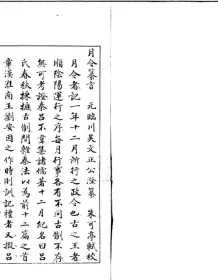 月令纂言　元臨川吳文正公澄纂　朱可亭軾校
月令者記一年十二月所行之政令也古之王者
順陰陽運行之序每月行事各有不同古制不存
無可考證秦呂不韋集諸儒著十二月紀名曰呂
氏春秋捃摭古制間雜秦法以為前十二篇之首
章漢淮南王劉安因之作時則訓記禮者又掇呂